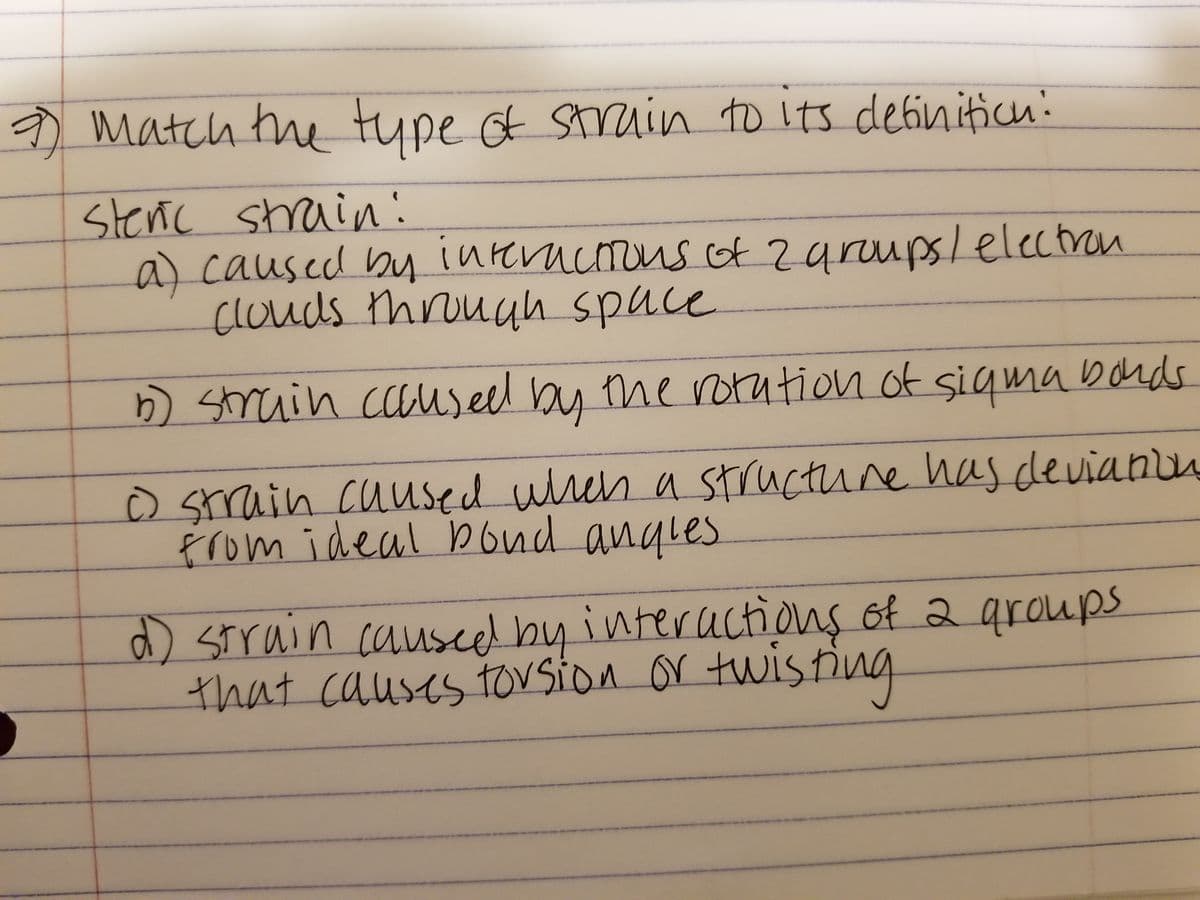 7) Match the type of strain to its definition:
Steric strain:
a) caused by interactions of 2 groups/electron
clouds through space
b) strain caused by the rotation of sigma bonds
c) strain caused when a structure has deviation
from ideal bond angles
d) strain caused by interactions of 2 groups
that causes torsion or twisting